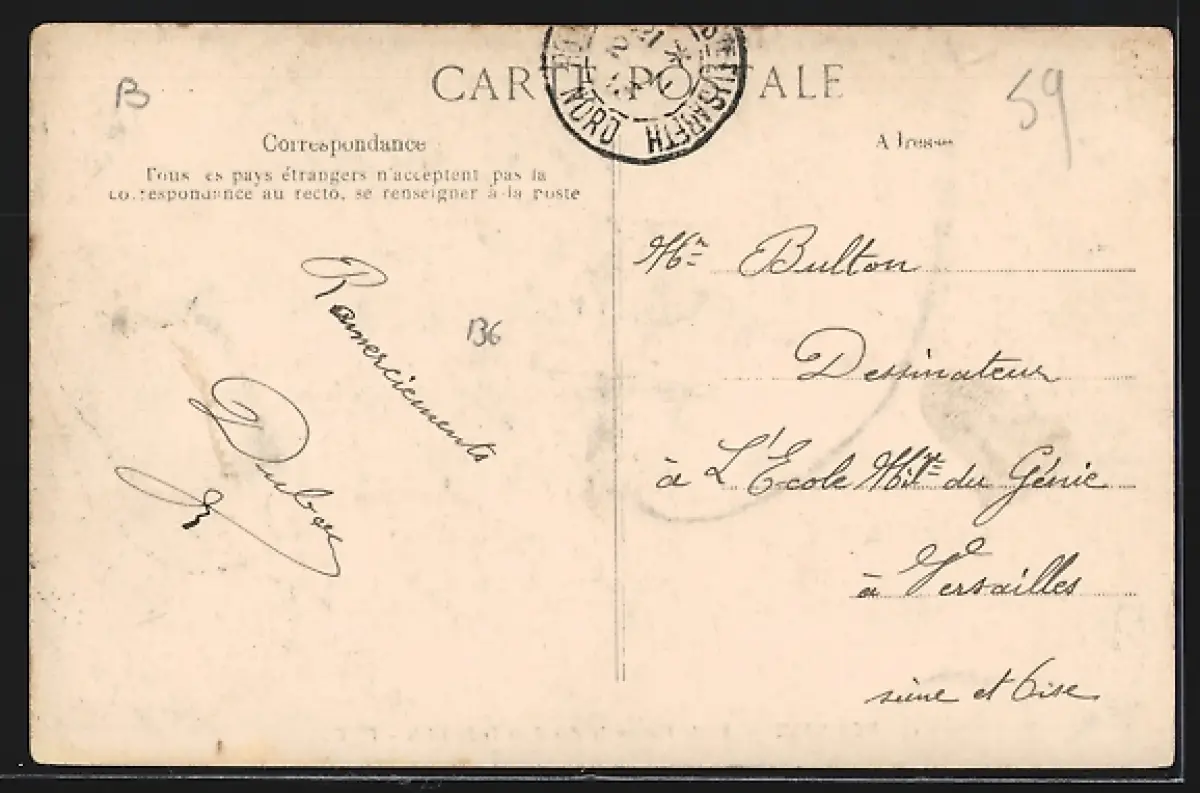 CARTE POSTALE
B
59
NORD
STE ELISABETH
Correspondance
Adresse
Tous les pays étrangers n'acceptent pas la
correspondance au recto, se renseigner à la Poste
Ramerciements
B6
Mr Bulton
Dessinateur
à L'Ecole Mitre du Génie
à Versailles
seine et Oise